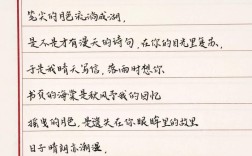 笔尖的月色流淌成湖,
是不是才有漫天的诗句,在你的目光里复苏,
于是我晴天写信,落雨时想你
书页的海棠是秋风予我的回忆
摇曳的月色,是遗失在你眼眸里的故里
日子晴朗亦潮湿,